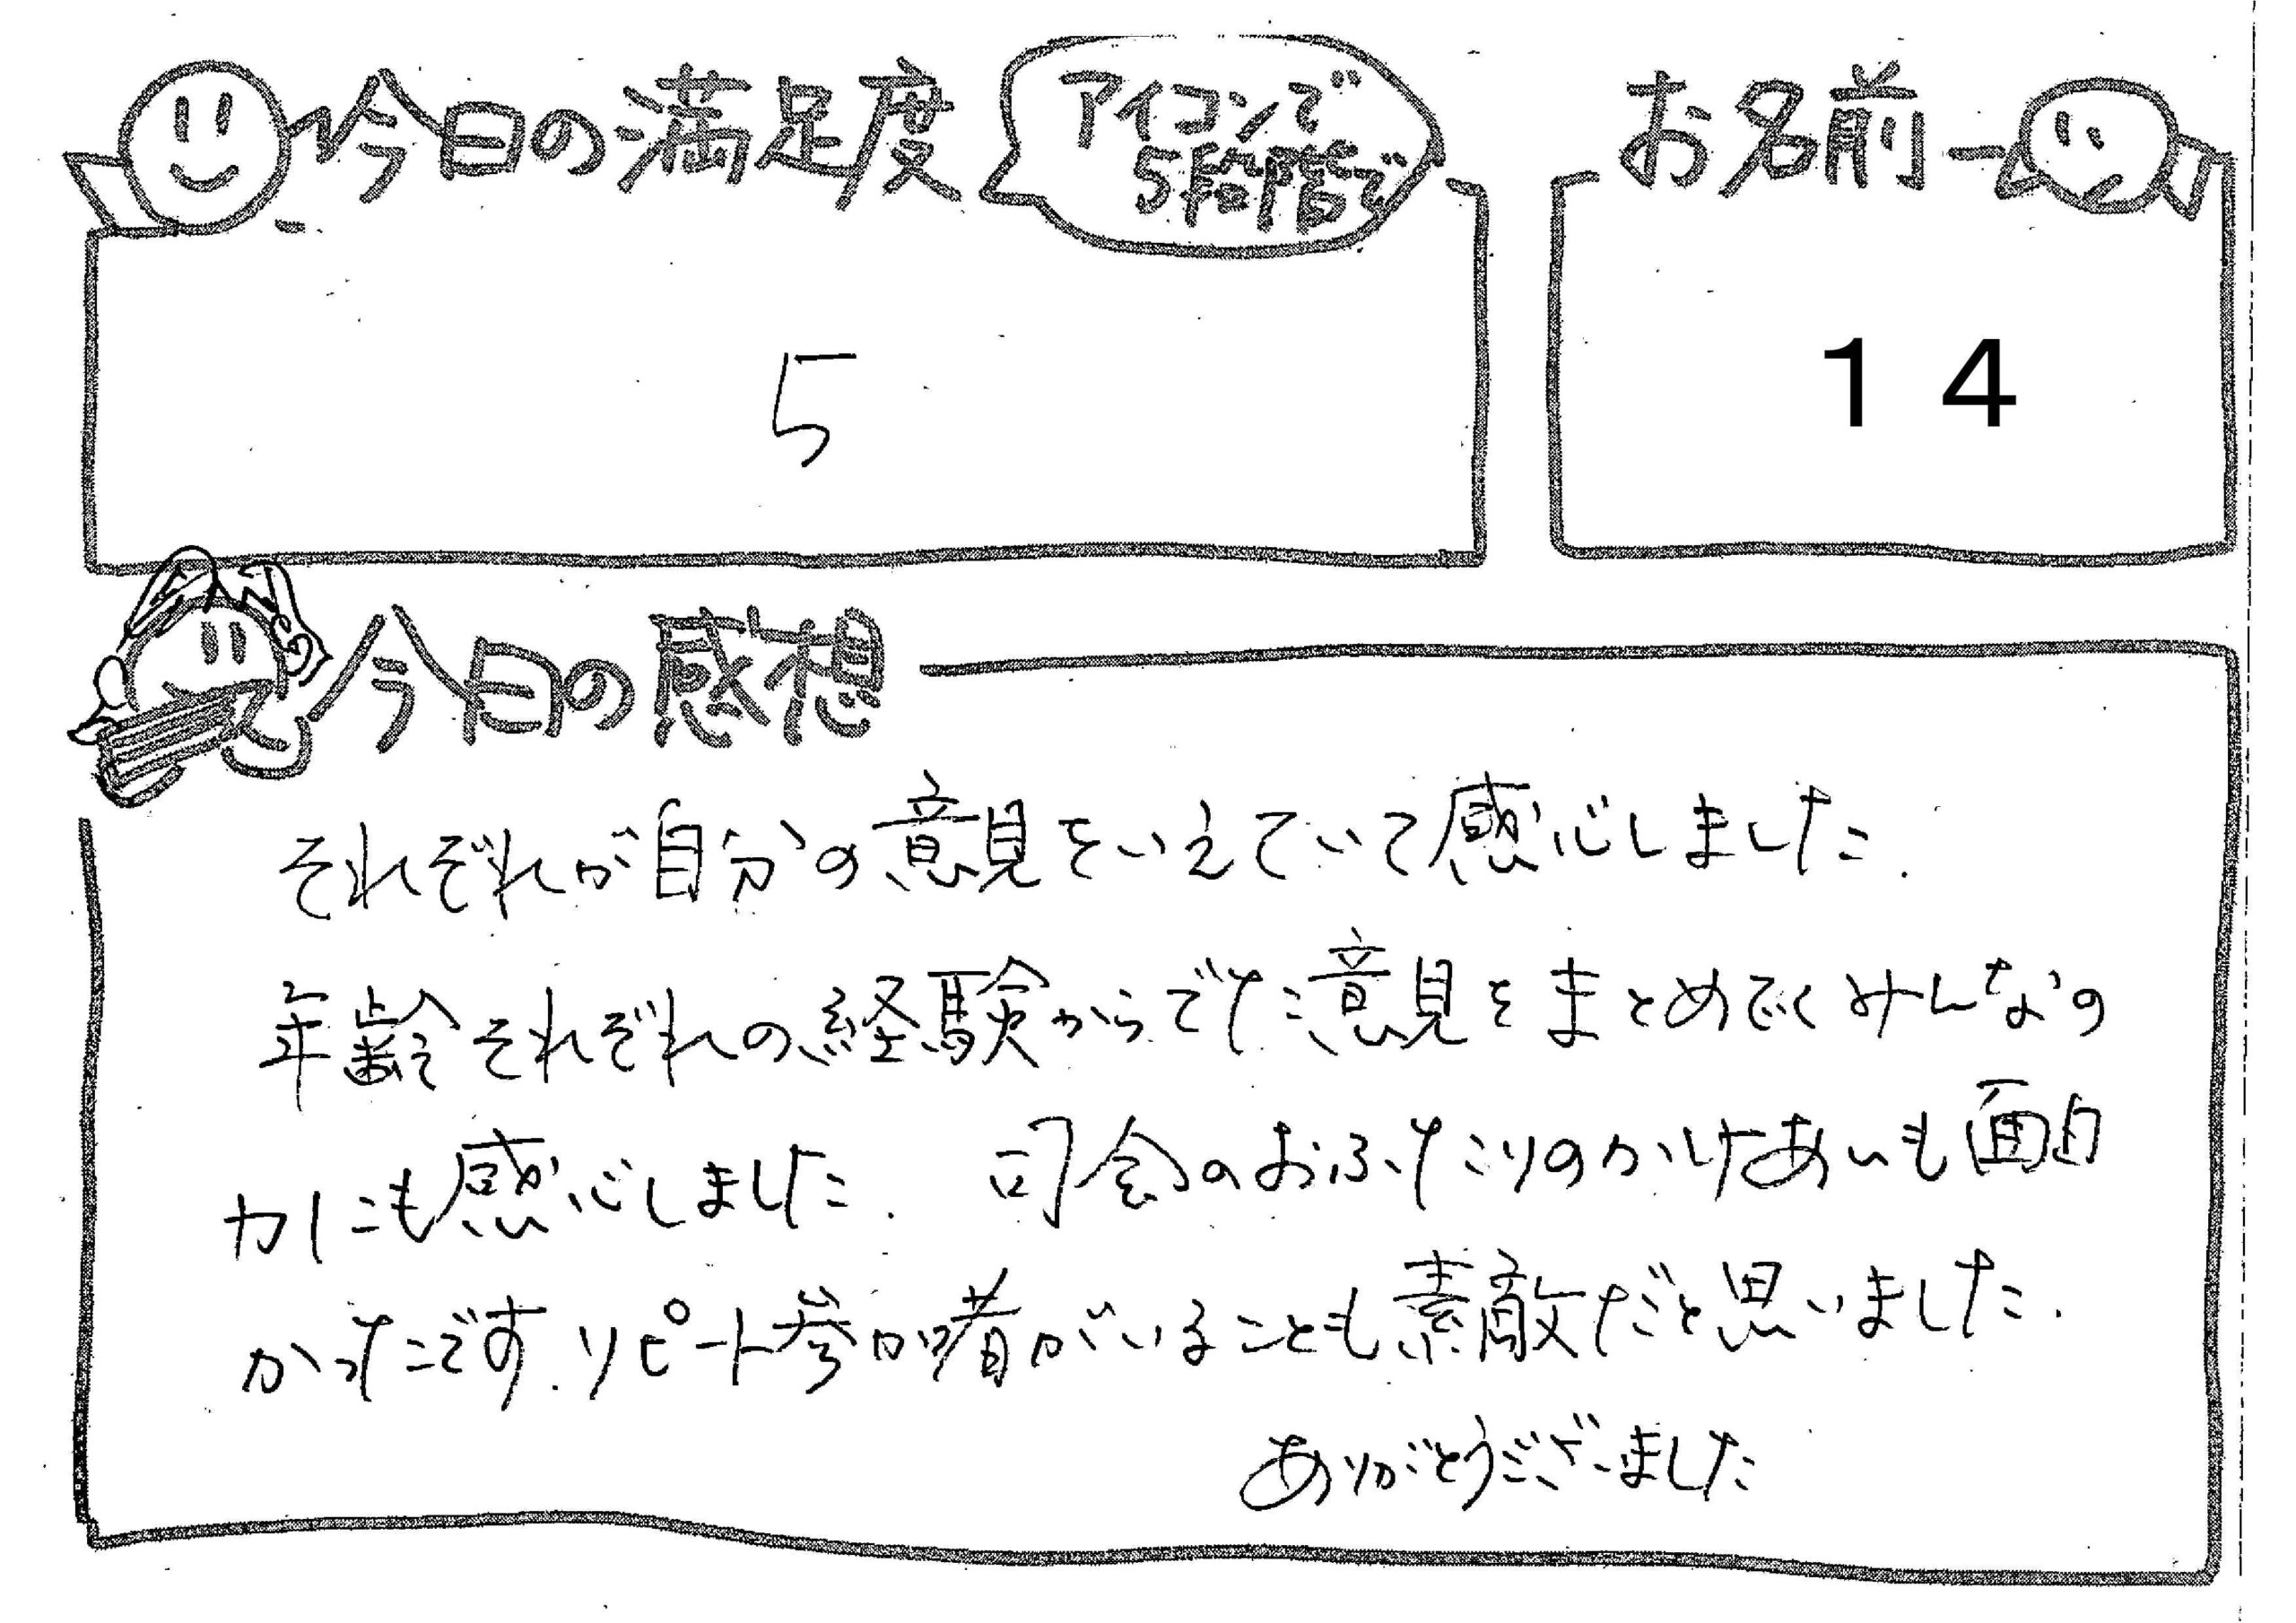 今日の満足度
アイコンで
5段階で
お名前
5
14
今日の感想
それぞれが自分の意見をいえていて感心しました.
年齢それぞれの経験からでた意見をまとめていくみんなの
力にも感心しました. 司会のおふたりのかけあいも面白
かったです. リピート参加者がいることも素敵だと思いました.
ありがとうございました